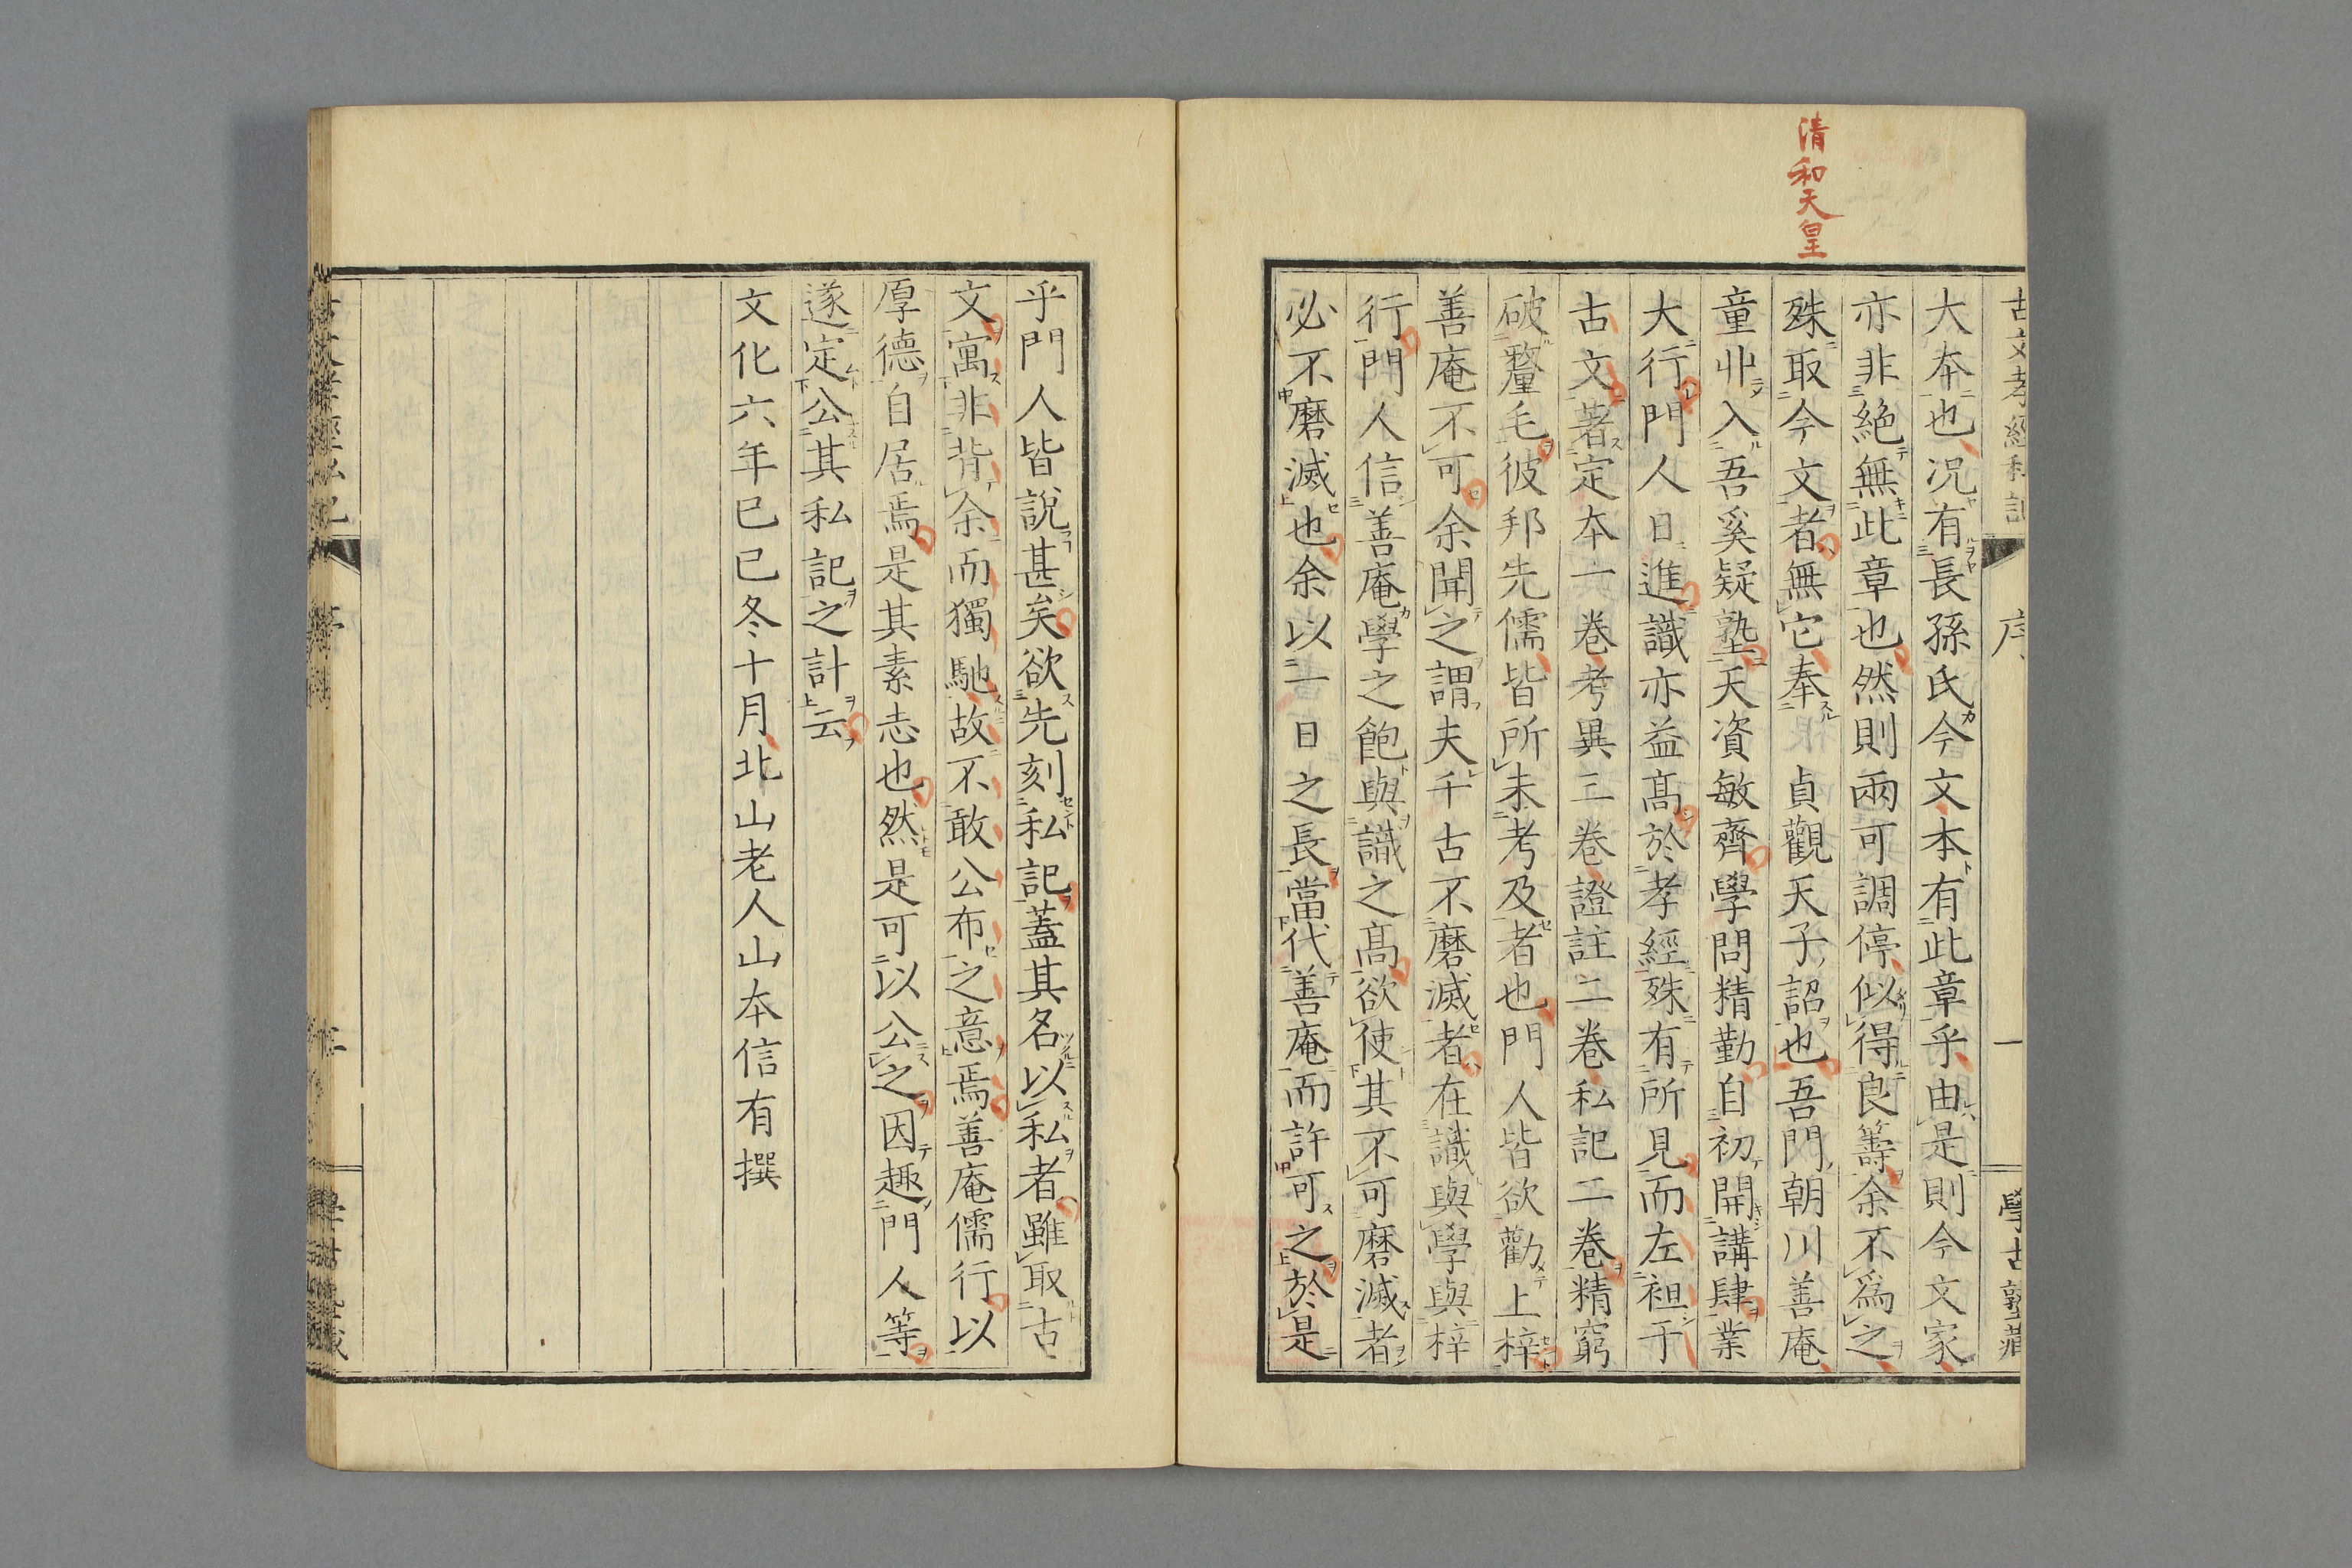 清和天皇
大本也况有長孫氏今文本有此章乎由是則今文家
亦非絶無此章也然則兩可調停似得良籌余不爲之
殊取今文者無它奉 貞觀天子詔也吾門朝川善庵
童丱入吾奚疑塾天資敏齊學問精勤自初開講肆業
大行門人日進識亦益高於孝經殊有所見而左袒于
古文著定本一巻考異三巻證註二巻私記二巻精窮
破釐毛彼邦先儒皆所未考及者也門人皆欲勸上梓
善庵不可余聞之謂夫千古不磨滅者在識與學與梓
行門人信善庵學之飽與識之高欲使其不可磨滅者
必不磨滅也余以一日之長當代善庵而許可之於是
乎門人皆說甚矣欲先刻私記蓋其名以私者雖取古
文寓非背余而獨馳故不敢公布之意焉善庵儒行以
厚德自居焉是其素志也然是可以公之因趣門人等
遂定公其私記之計云
文化六年已巳冬十月北山老人山本信有撰
序
一
學古塾藏